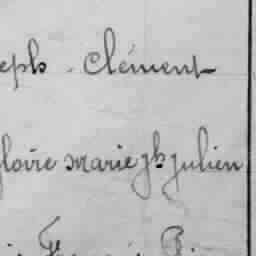 eph. Clément
loire Marie Jh Julien